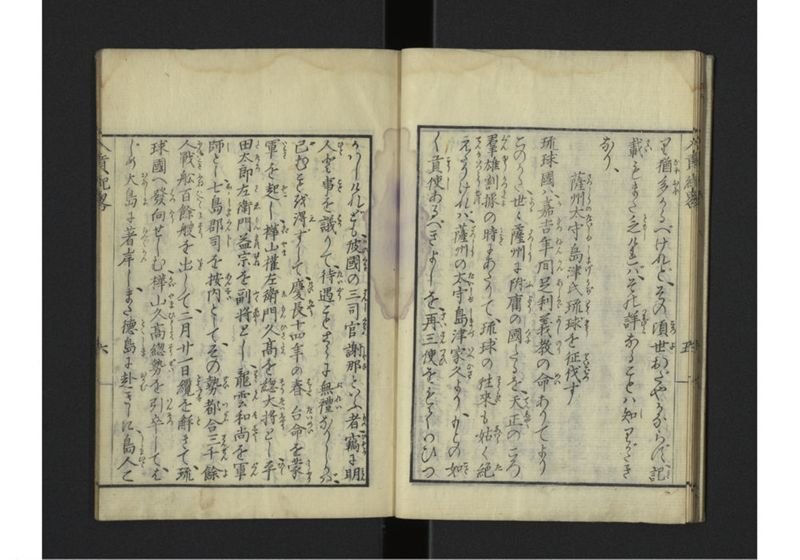 猶多かるべけれど、その頃世おだやかならば、記
載もまた乏しければ、その詳なることは知りがたき
なり、
薩州太守島津氏琉球を征伐す
琉球國ハ嘉吉年間足利義教の命ありてより
このかた世々薩州の附庸の國たるを天正のころ
羣雄割據の時にあたりて、琉球の往來も姑く絶
たりければ、薩州の太守島津家久より、もとの如
く貢使あるべきよしを再三使を
五
かりけれども彼國の三司官謝那といふ者竊に明
人と事を議りて、待遇ことさらに無禮なりしかバ、
已むを得ずして慶長十四年の春、台命を蒙
軍を起し樺山權左衛門久高を総大将とし平
田太郎左衛門益宗を副将とし、龍雲和尚を軍
師とし七島郡司を按内としてその勢都合三千餘
人戰舩百餘艘を出して二月廿一日纜を解きて琉
球國へ發向せしむ樺山久高總勢を引卒して、は
じめ大島に著岸しまた徳島に赴きしに島人
入貢紀略
六